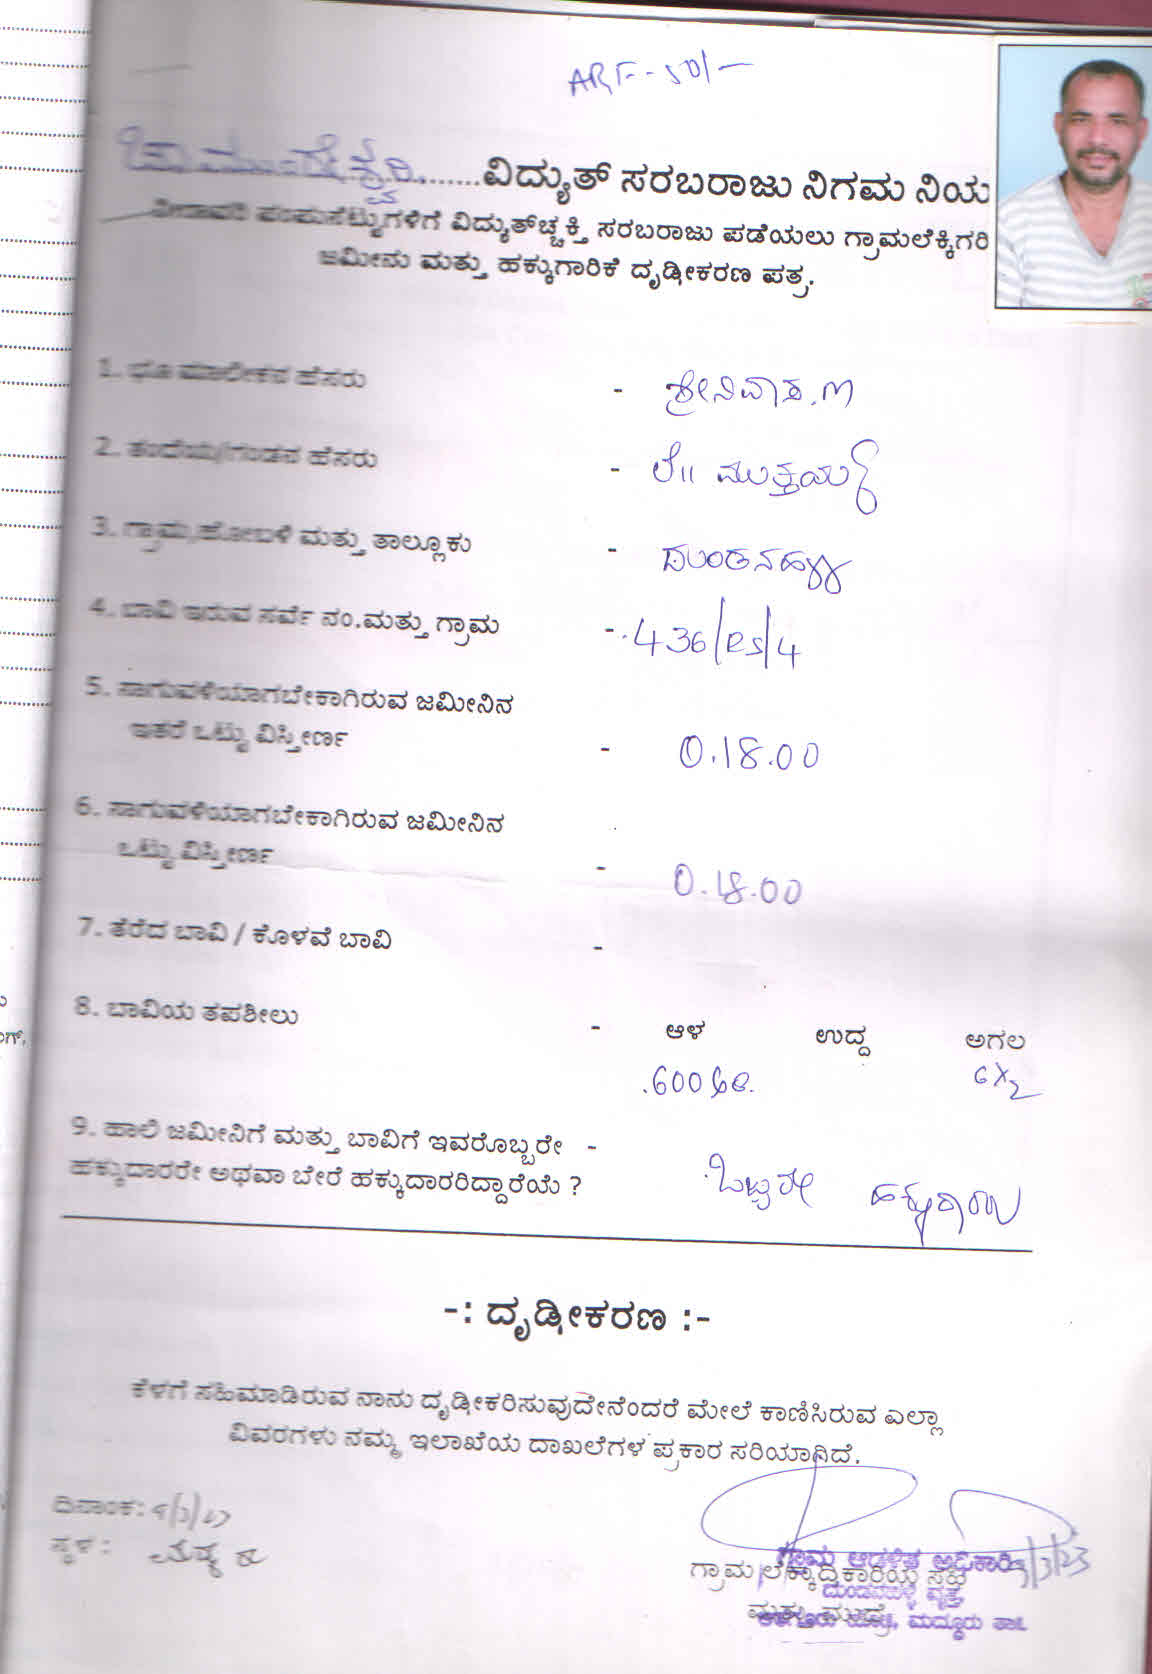 ARF-50/-
ಚಾಮುಂಡೇಶ್ವರಿ.......ವಿದ್ಯುತ್ ಸರಬರಾಜು ನಿಗಮ ನಿಯ
ನೀರಾವರಿ ಪಂಪುಸೆಟ್ಟುಗಳಿಗೆ ವಿದ್ಯುತ್‌ಚ್ಛಕ್ತಿ ಸರಬರಾಜು ಪಡೆಯಲು ಗ್ರಾಮಲೆಕ್ಕಿಗರಿ
ಜಮೀನು ಮತ್ತು ಹಕ್ಕುಗಾರಿಕೆ ದೃಢೀಕರಣ ಪತ್ರ.
1. ಭೂ ಮಾಲೀಕನ ಹೆಸರು - ಶ್ರೀನಿವಾಸ.M
2. ತಂದೆಯ/ಗಂಡನ ಹೆಸರು - ಲೇ|| ಮುತ್ತಯ್ಯ
3. ಗ್ರಾಮ,ಹೋಬಳಿ ಮತ್ತು ತಾಲ್ಲೂಕು -
4. ಬಾವಿ ಇರುವ ಸರ್ವೆ ನಂ.ಮತ್ತು ಗ್ರಾಮ - 436/
5. ಸಾಗುವಳಿಯಾಗಬೇಕಾಗಿರುವ ಜಮೀನಿನ
ಇತರೆ ಒಟ್ಟು ವಿಸ್ತೀರ್ಣ - 0.18.00
6. ಸಾಗುವಳಿಯಾಗಬೇಕಾಗಿರುವ ಜಮೀನಿನ
ಒಟ್ಟು ವಿಸ್ತೀರ್ಣ - 0.18.00
7. ತೆರೆದ ಬಾವಿ / ಕೊಳವೆ ಬಾವಿ -
8. ಬಾವಿಯ ತಪಶೀಲು - ಆಳ ಉದ್ದ ಅಗಲ
600
9. ಹಾಲಿ ಜಮೀನಿಗೆ ಮತ್ತು ಬಾವಿಗೆ ಇವರೊಬ್ಬರೇ -
ಹಕ್ಕುದಾರರೇ ಅಥವಾ ಬೇರೆ ಹಕ್ಕುದಾರರಿದ್ದಾರೆಯೆ ? ಒಬ್ಬರೇ
-: ದೃಢೀಕರಣ :-
ಕೆಳಗೆ ಸಹಿಮಾಡಿರುವ ನಾನು ದೃಢೀಕರಿಸುವುದೇನೆಂದರೆ ಮೇಲೆ ಕಾಣಿಸಿರುವ ಎಲ್ಲಾ
ವಿವರಗಳು ನಮ್ಮ ಇಲಾಖೆಯ ದಾಖಲೆಗಳ ಪ್ರಕಾರ ಸರಿಯಾಗಿದೆ.
ದಿನಾಂಕ:
ಸ್ಥಳ :
ಗ್ರಾಮ ಆಡಳಿತ ಅಧಿಕಾರಿ
ಗ್ರಾಮ ಲೆಕ್ಕಾಧಿಕಾರಿಯ ಸಹಿ
ವೃತ್ತ,
ಮತ್ತು ಮುದ್ರೆ
ಮದ್ದೂರು ತಾ||